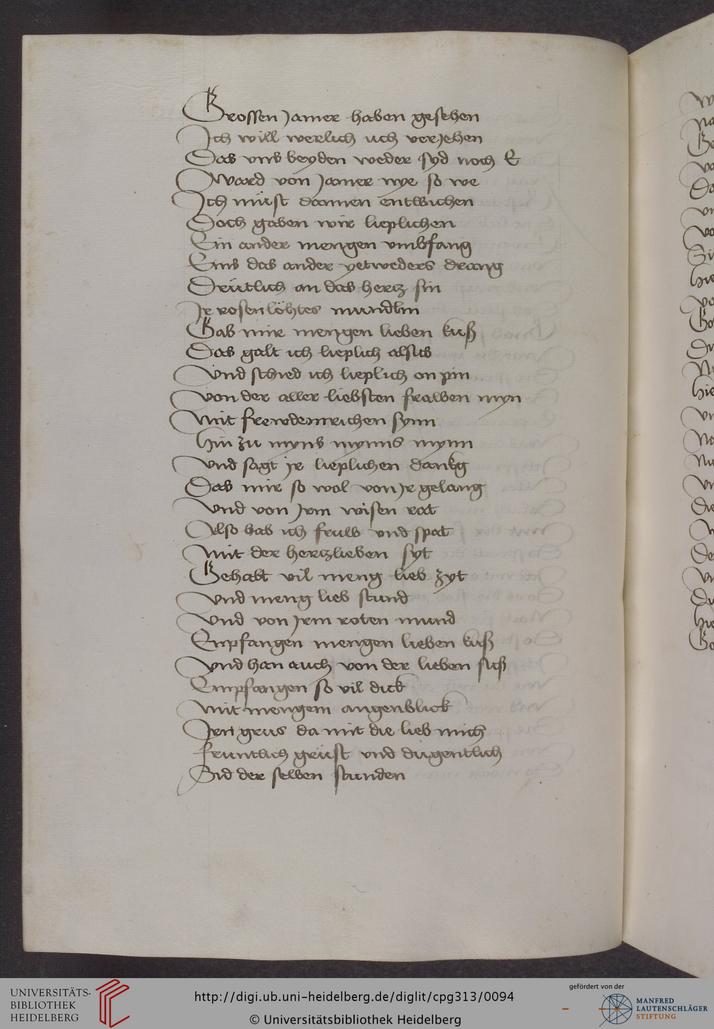 Grossen Jamer haben gesehen
Ich will werlich uch veriehen
Das vns beyden weder syd noch E
Ward von Jamer nye so we
Ich müst dannen entwichen
Doch gaben wir lieplichen
Ein ander mengen vmbfang
Eins das ander yetweders drang
Drütlich an das hertz sin
Ir rosenlöhtes mundlin
Gab mir mengen lieben kuß
Das galt ich lieplich alsus
Vnd schied ich lieplich on pin
Von der aller liebsten frawen myn
Mit frewdenrichen synn
Hin zu myns mynns mynn
Vnd sagt ir lieplichen danckg
Das mir so wol von Ir gelang
Vnd von Irm wisen rat
Also hab ich fruw vnd spat
Mit der hertzlieben syt
Gehabt vil meng lieb zyt
Vnd meng lieb stund
Vnd von Irm roten mund
Enpfangen mengen lieben kuß
Vnd han auch von der lieben suß
Empfangen so vil dick
Mit mengem augenblick
Iren grus da mit die lieb mich
fruntlich grüst vnd dugentlich
Sid der selben stunden
UNIVERSITÄTS-
BIBLIOTHEK
HEIDELBERG
http://digi.ub.uni-heidelberg.de/diglit/cpg313/0094
© Universitätsbibliothek Heidelberg
gefördert von der
MANFRED
LAUTENSCHLÄGER
STIFTUNG